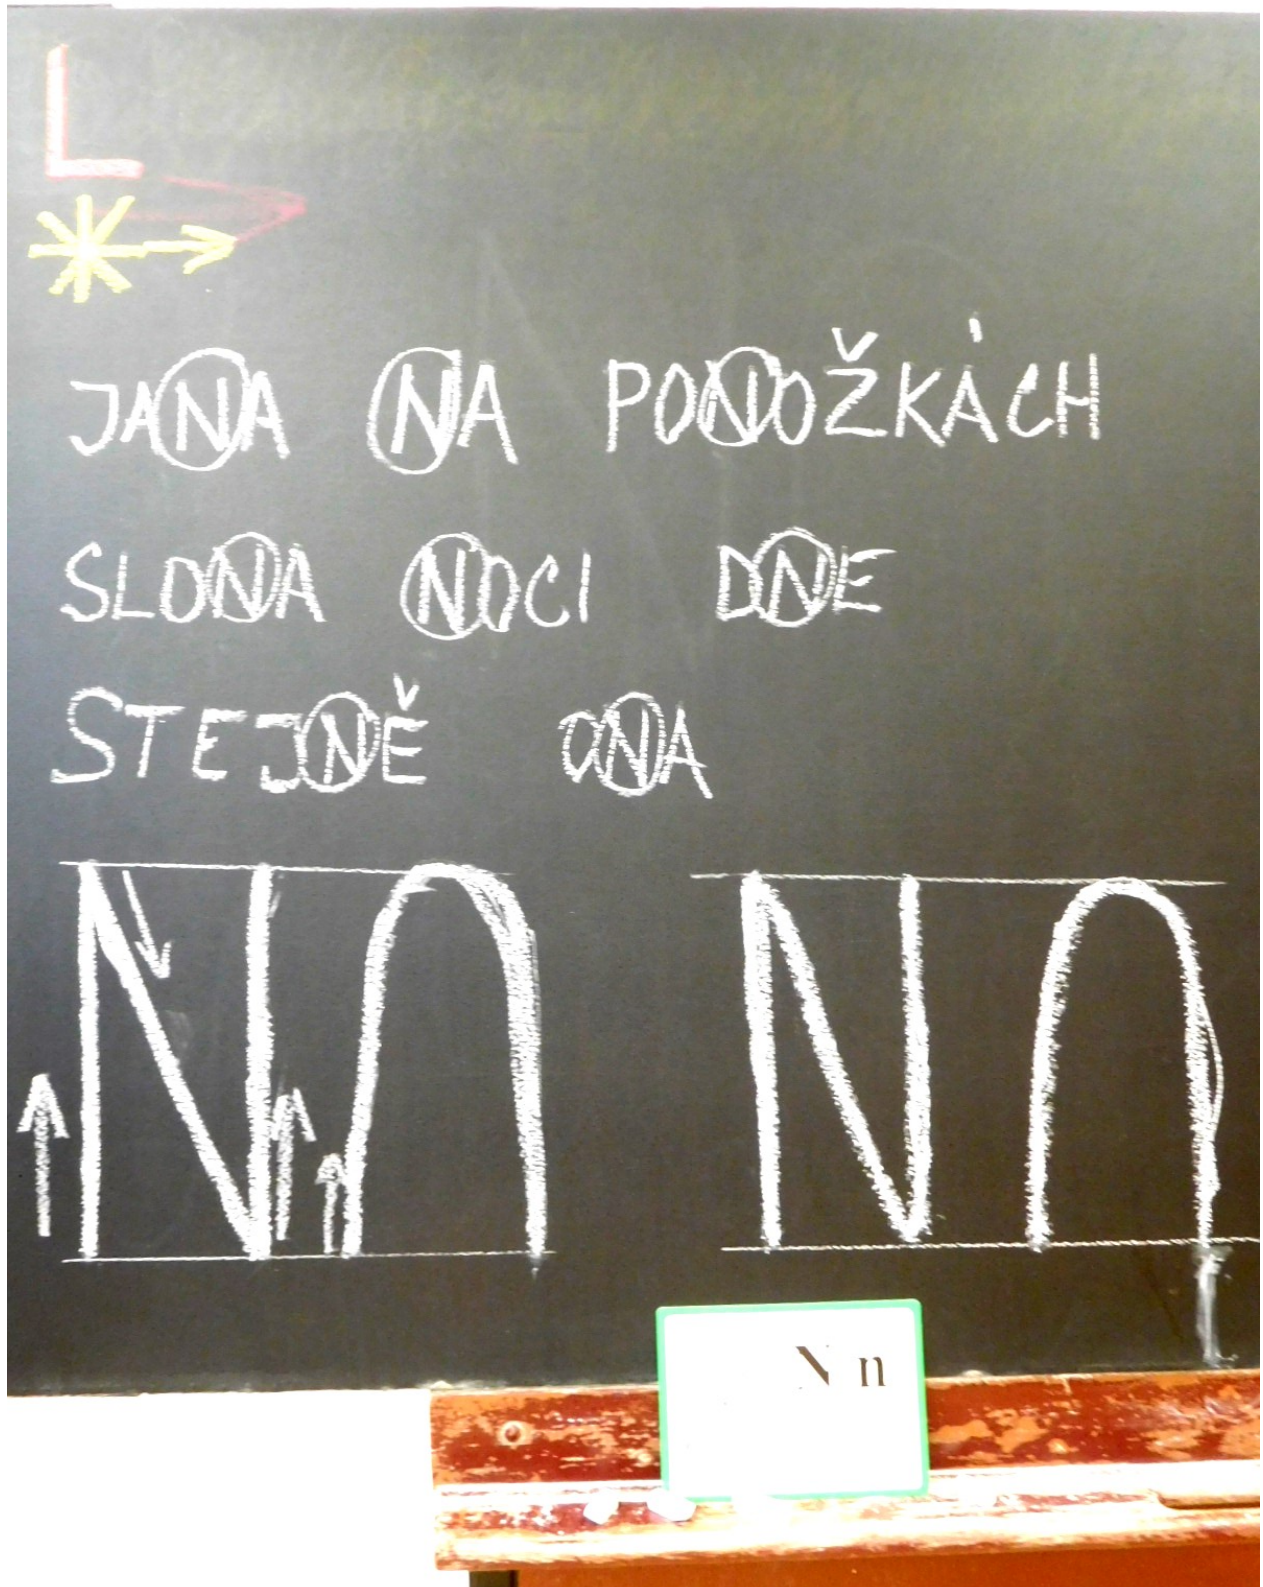 L
JANA NA PONOŽKÁCH
SLONA NOCI DNE
STEJNĚ ONA
N n N n
N n